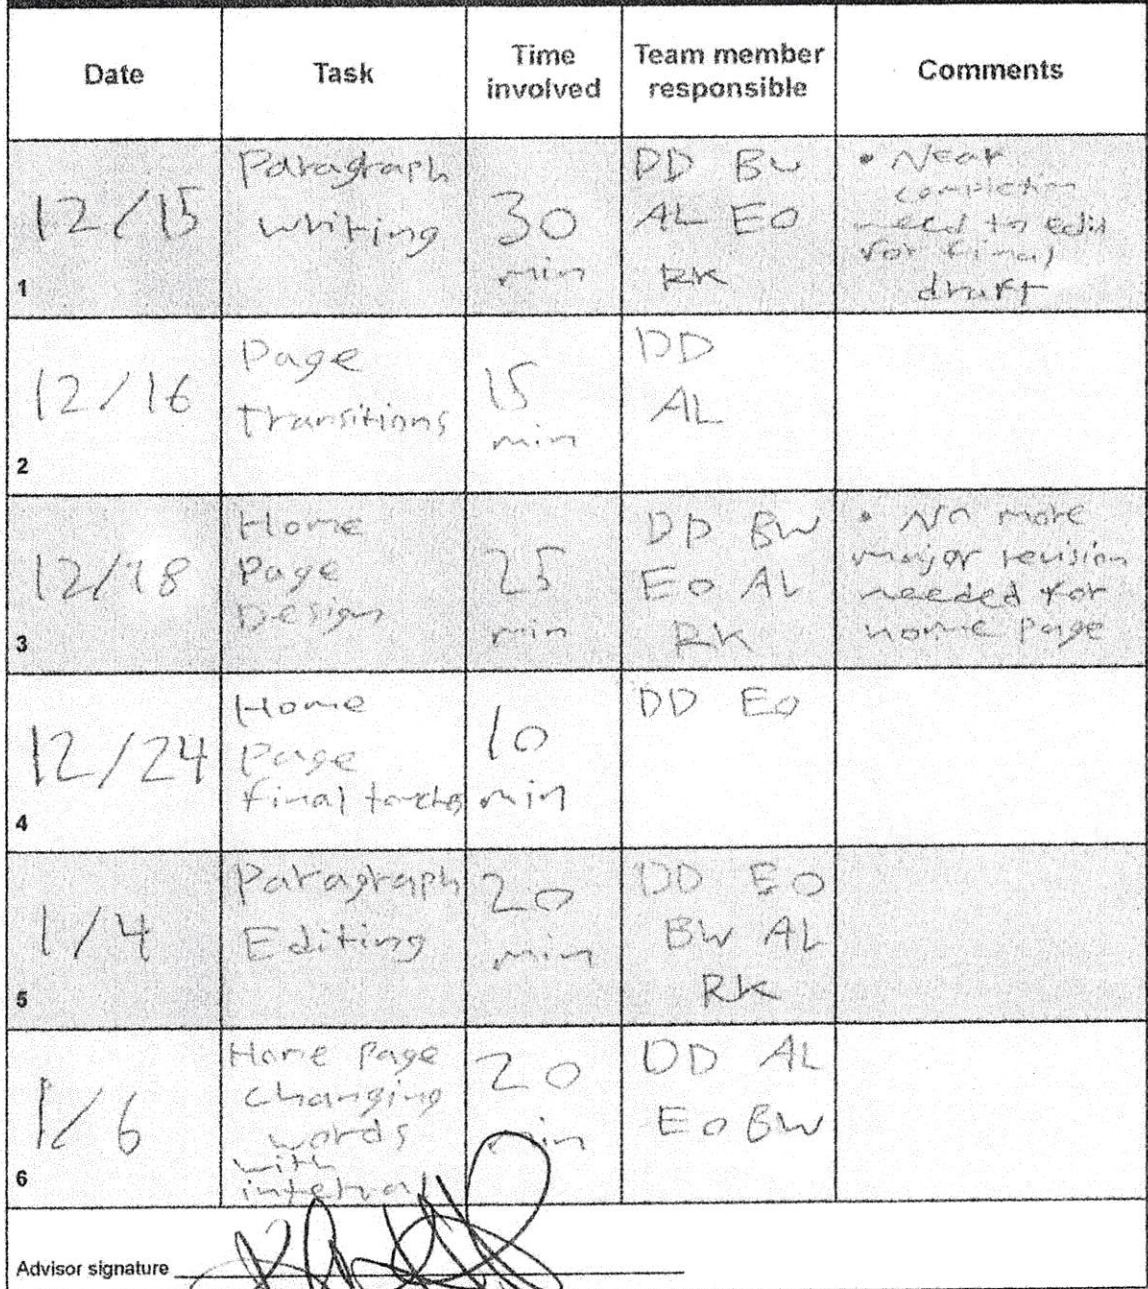 Date
Task
Time
involved
Team member
responsible
Comments
12/15
1
Paragraph
writing
30
min
DD BW
AL EO
RK
• Near
completion
need to edit
for final
draft
12/16
2
Page
Transitions
15
min
DD
AL
12/18
3
Home
Page
Design
25
min
DD BW
EO AL
RK
• No more
major revision
needed for
home page
12/24
4
Home
Page
final touches
10
min
DD EO
1/4
5
Paragraph
Editing
20
min
DD EO
BW AL
RK
1/6
6
Home Page
changing
words
with
interval
20
min
DD AL
EO BW
Advisor signature